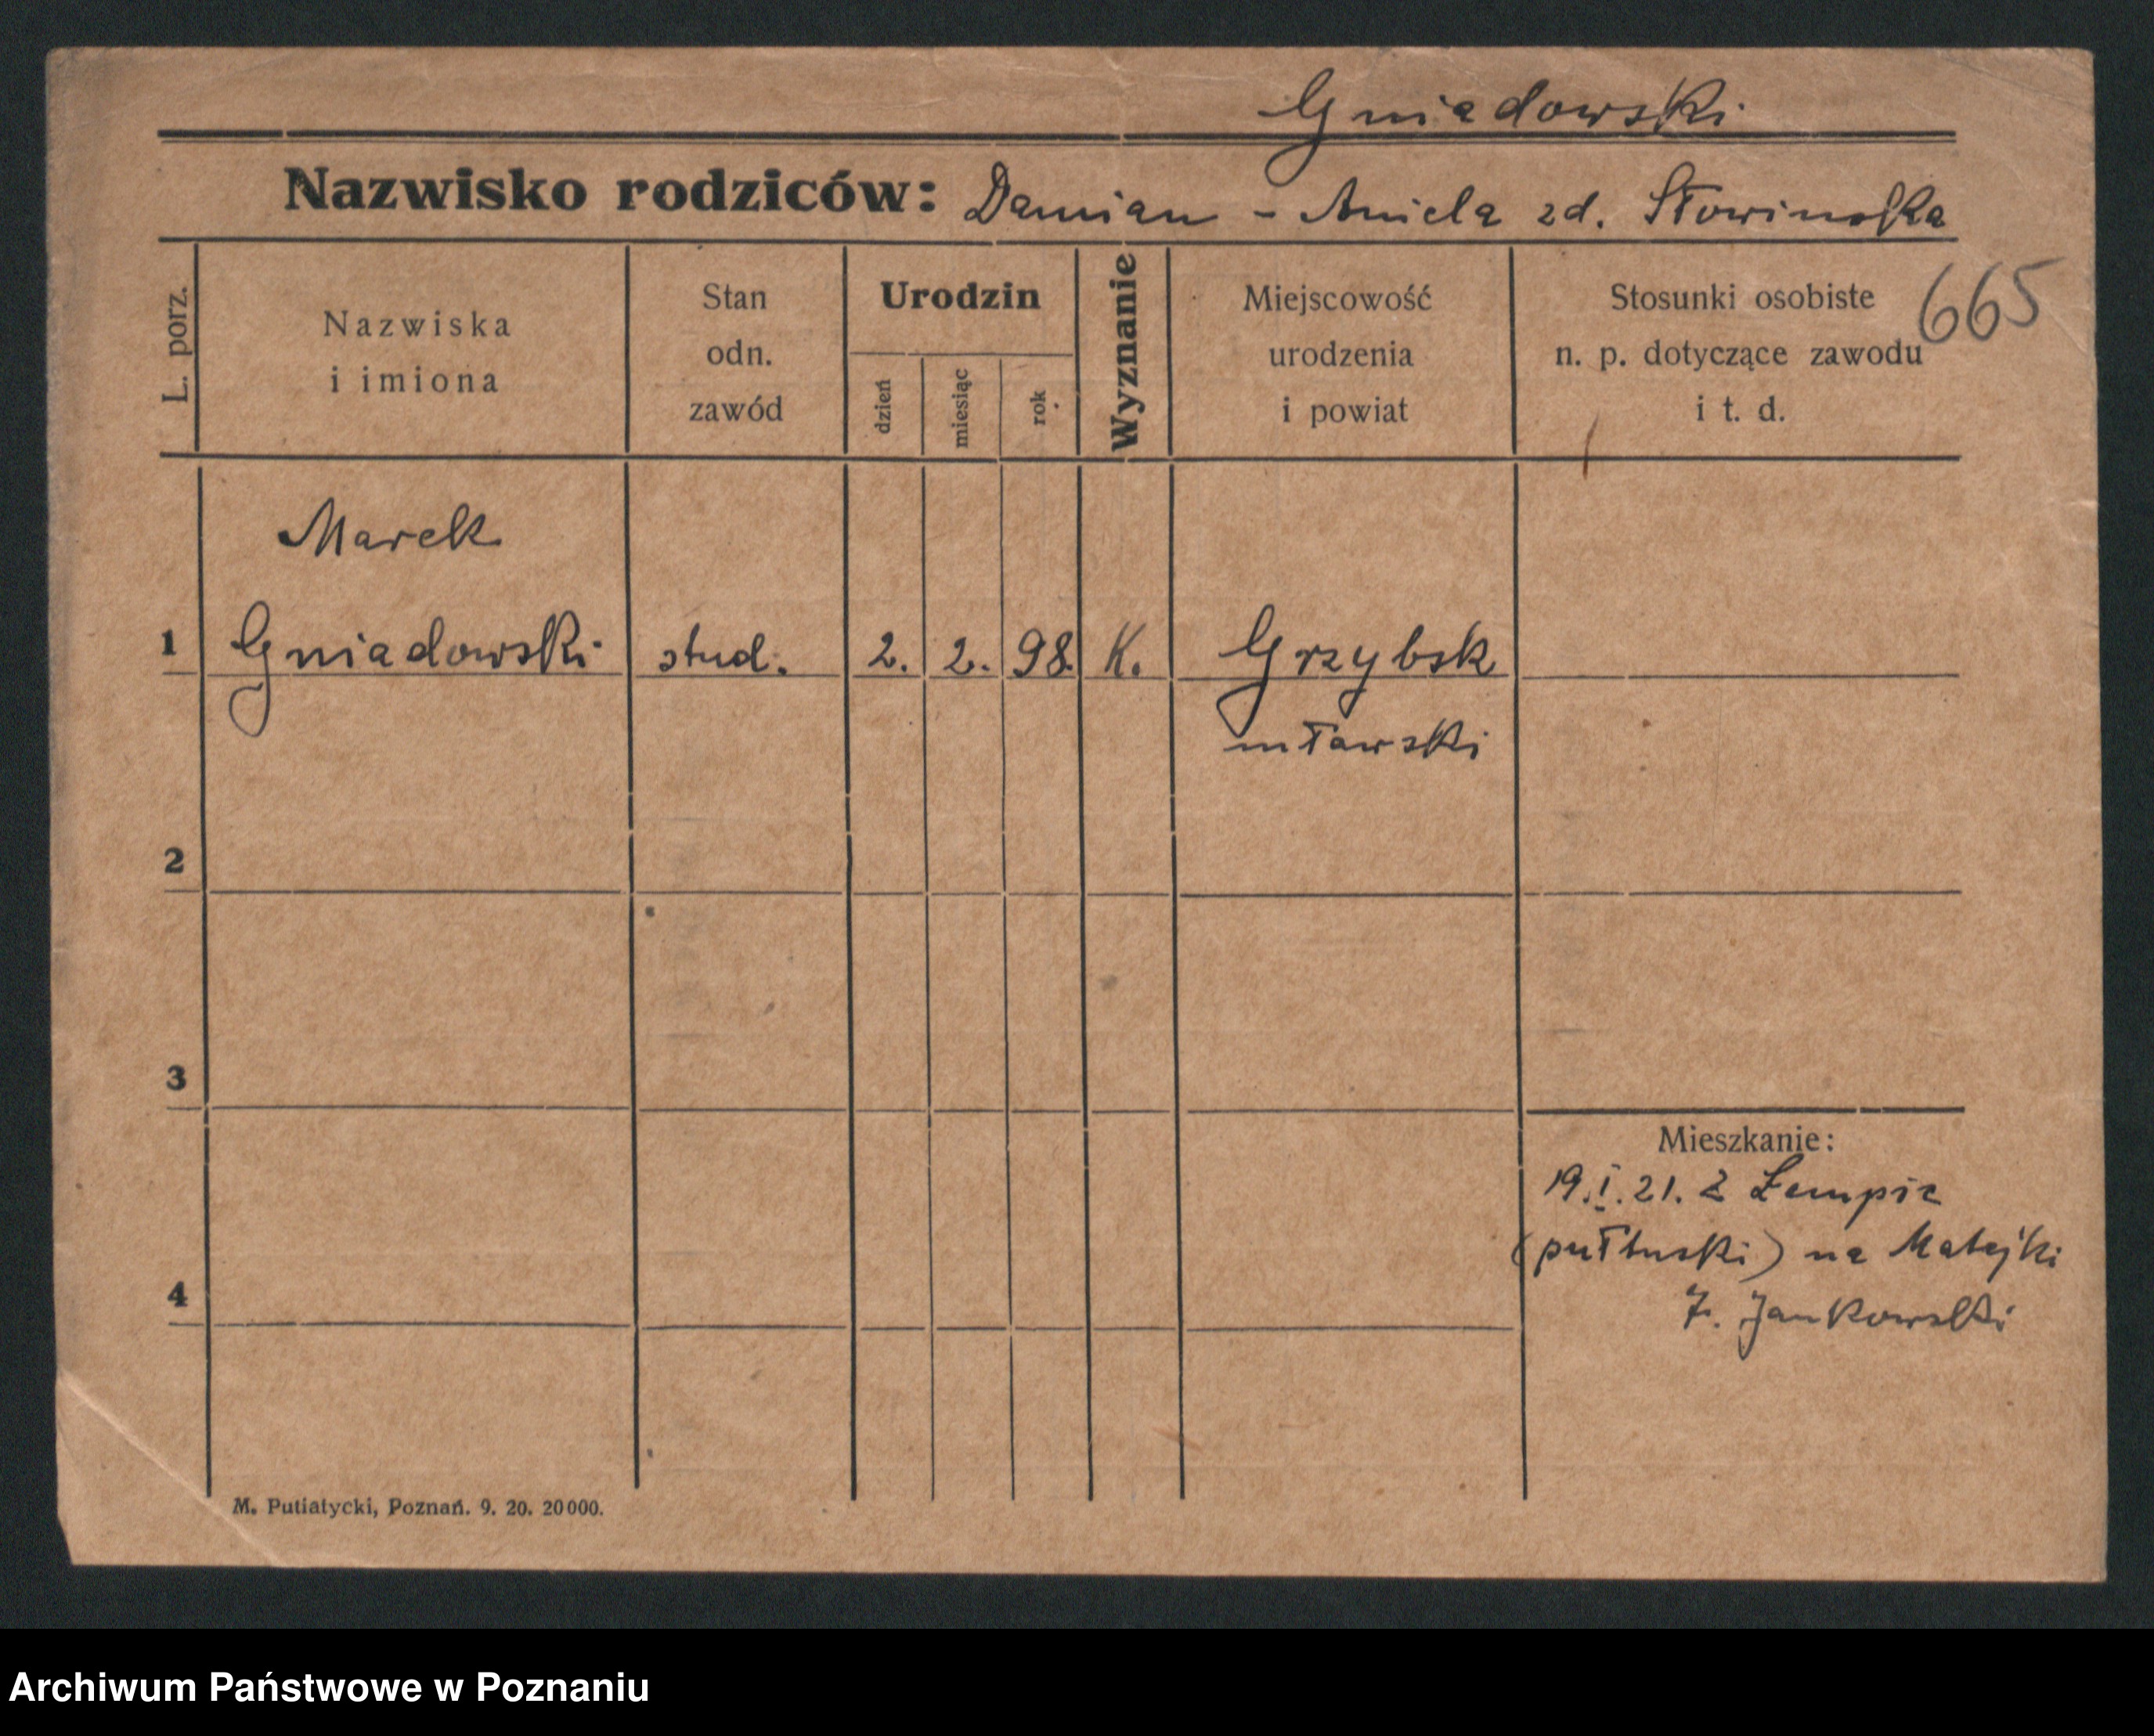 Gniadowski
Nazwisko rodziców: Damian - Aniela zd. Słowinska
665
L. porz.
Nazwiska
i imiona
Stan
odn.
zawód
Urodzin
dzień
miesiąc
rok
Wyznanie
Miejscowość
urodzenia
i powiat
Stosunki osobiste
n. p. dotyczące zawodu
i t. d.
Marek
1 Gniadowski stud. 2. 2. 98. K. Grzybsk
mławski
2
3
Mieszkanie:
19.I.21. z Łempic
(pułtuski) na Matejki
4
7. Jankowski
M. Putiatycki, Poznań. 9. 20. 20000.
Archiwum Państwowe w Poznaniu